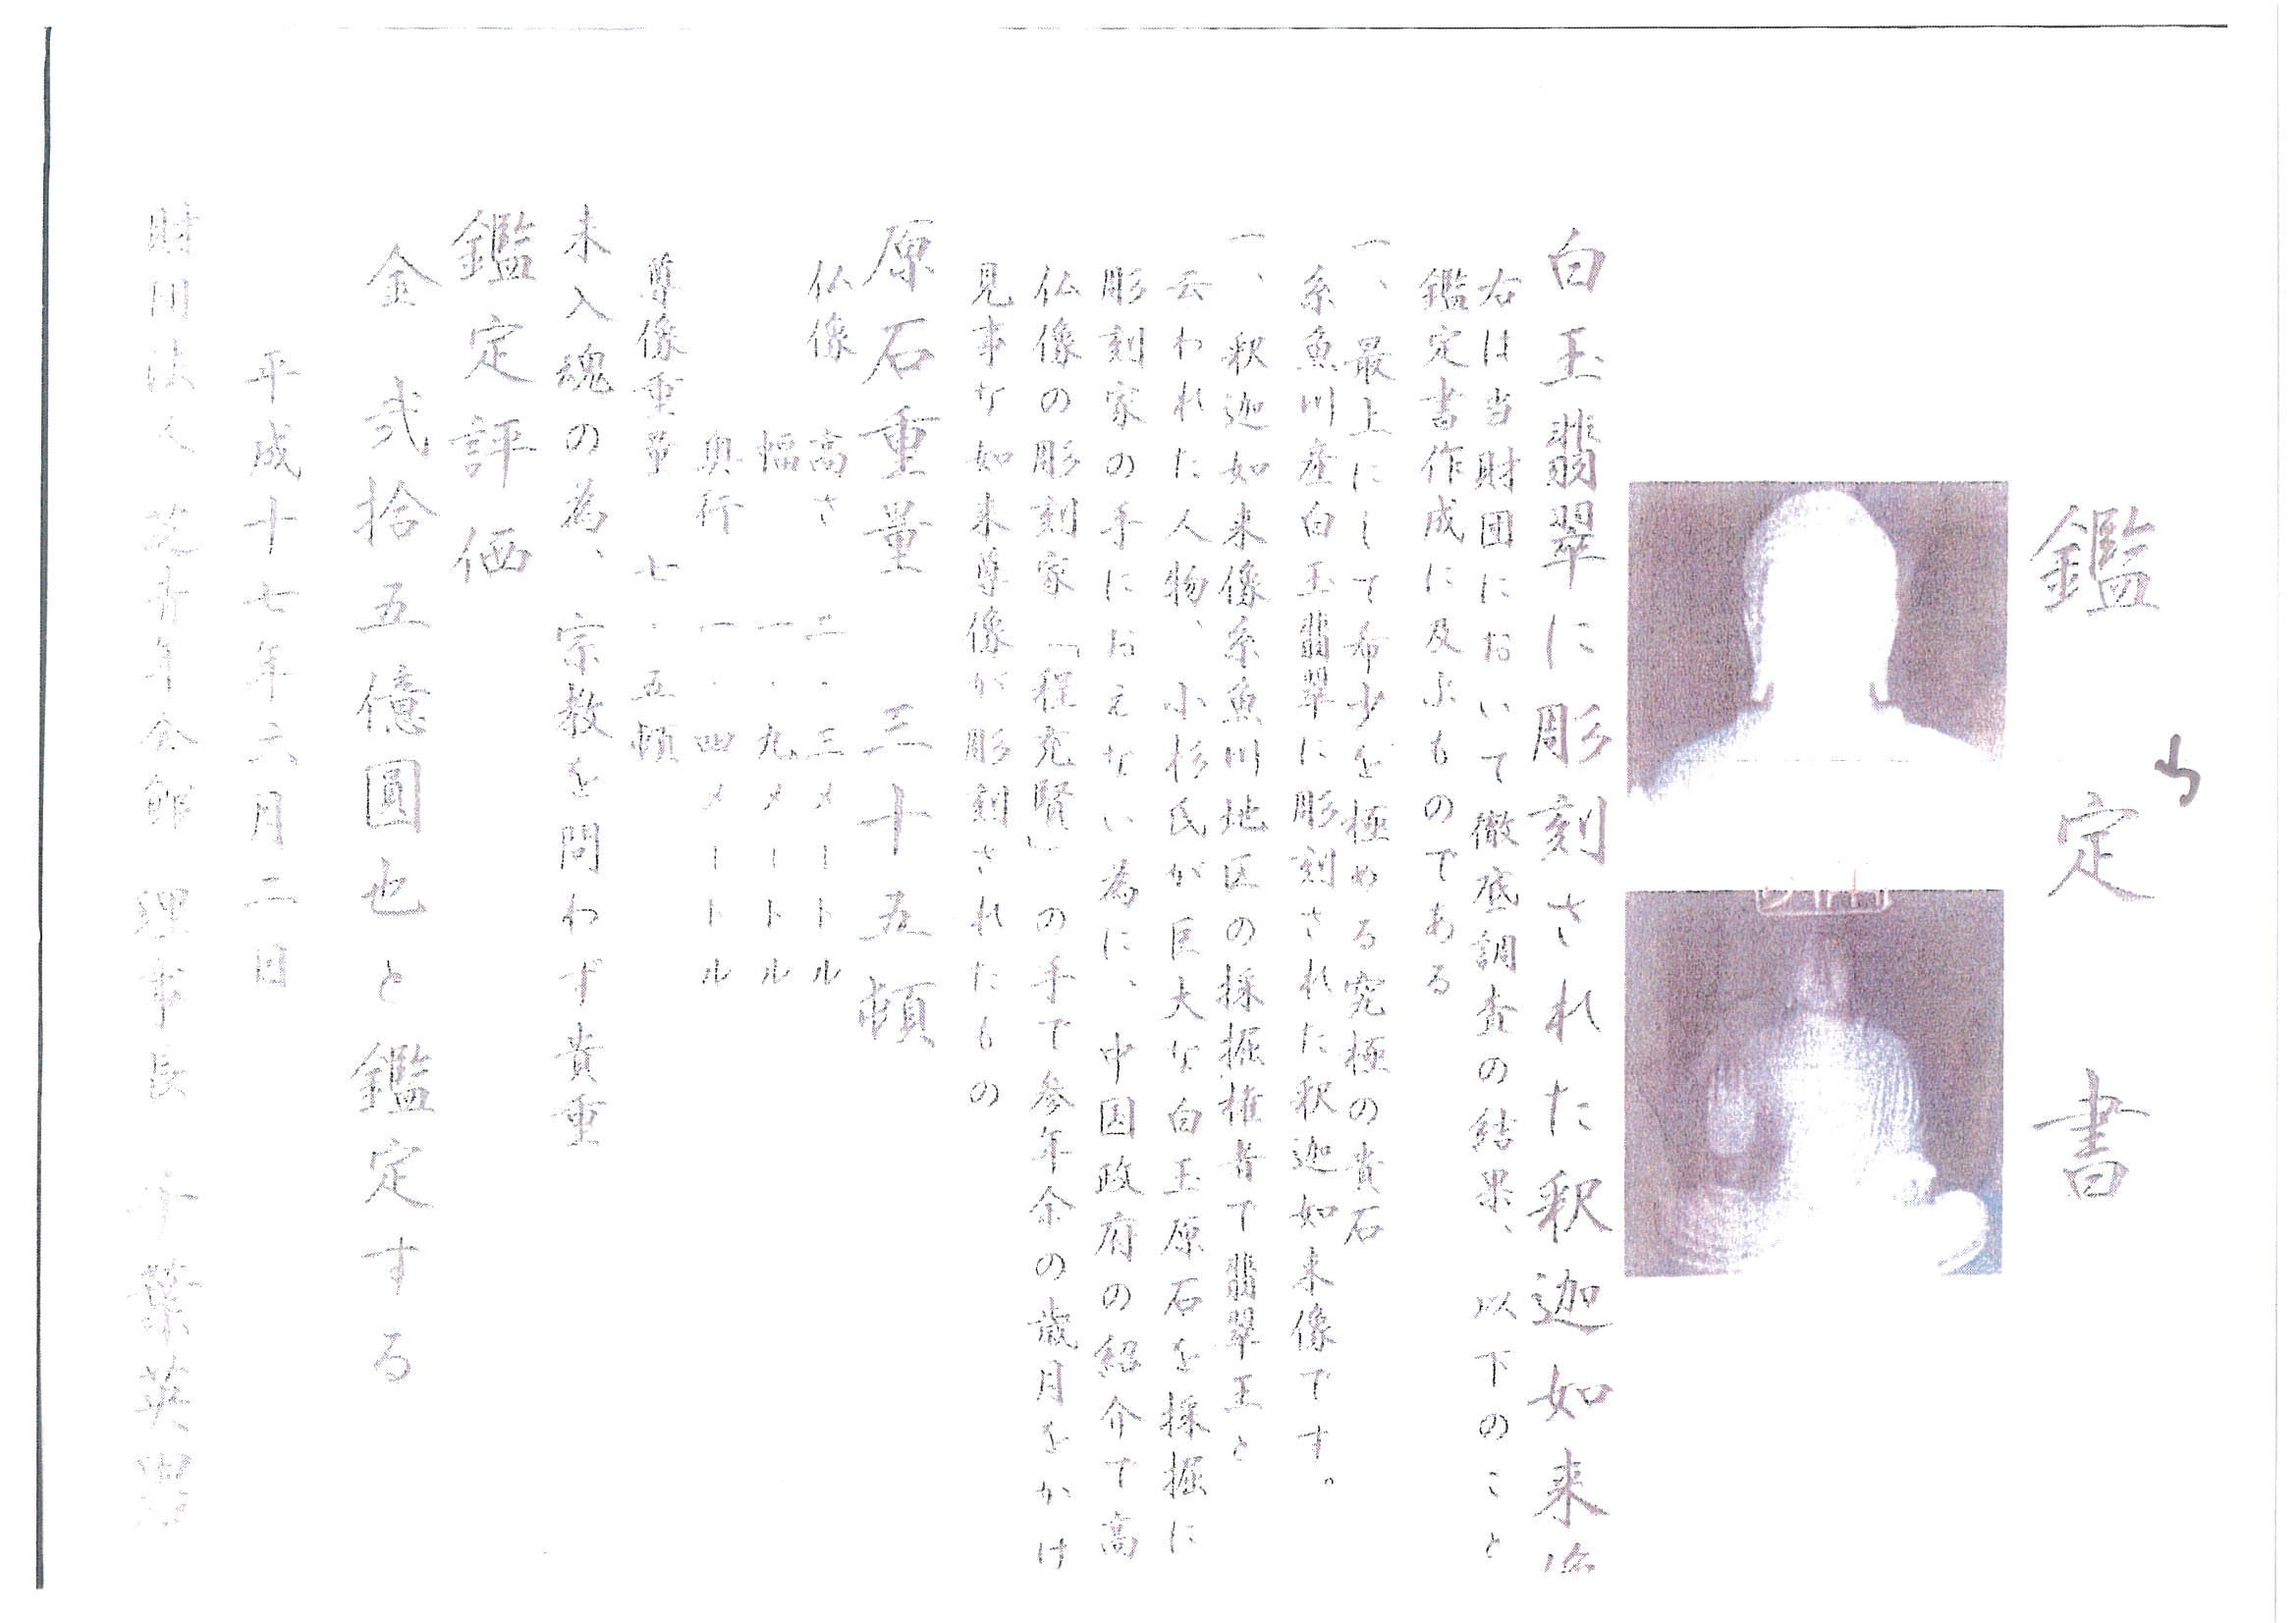 鑑定書
白玉翡翠に彫刻された釈迦如来像
右は当財団において徹底調査の結果、以下のこと
鑑定書作成に及ぶものである
一、最上にして希少を極める究極の貴石
糸魚川産白玉翡翠に彫刻された釈迦如来像です。
一、釈迦如来像糸魚川地区の採掘権者で翡翠王と
云われた人物、小杉氏が巨大な白玉原石を採掘に
彫刻家の手におえない為に、中国政府の紹介で高
仏像の彫刻家「程充賢」の手で参年余の歳月をかけ
見事な如来尊像が彫刻されたもの
原石重量 三十五頓
仏像 高さ 二.三メートル
幅 一.九メートル
奥行 一.四メートル
尊像重量 七.五頓
未入魂の為、宗教を問わず貴重
鑑定評価
金弐拾五億圓也と鑑定する
平成十七年六月二日
財団法人 芝青年会館 理事長 千葉英